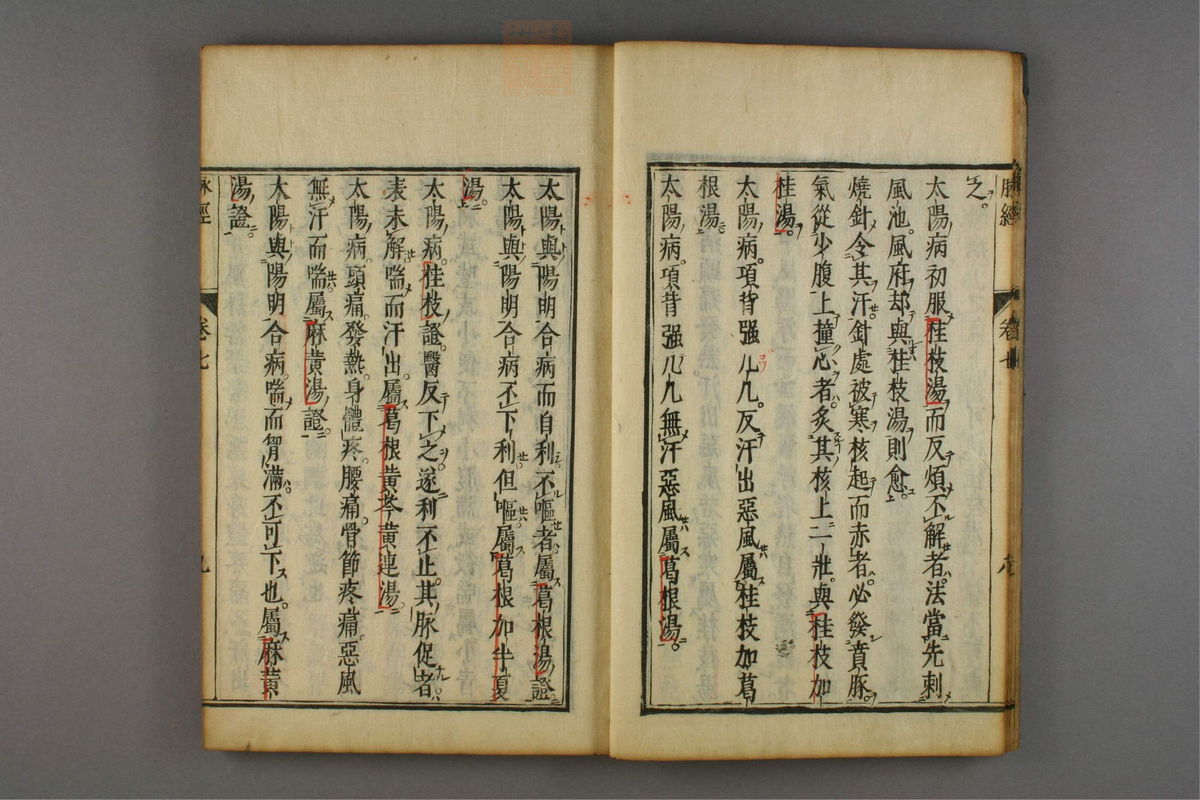 脉經
卷七
之。
太陽病初服桂枝湯而反煩不解者。法當先刺
風池。風府却與桂枝湯則愈。
燒針令其汗。針處被寒核起而赤者。必發賁豚。
氣從少腹上撞心者。灸其核上一壯與桂枝加
桂湯。
太陽病。項背强几几。反汗出惡風屬桂枝加葛
根湯。
太陽病。項背强几几無汗惡風屬葛根湯。
太陽與陽明合病而自利不嘔者屬葛根湯證
太陽與陽明合病不下利但嘔屬葛根加半夏
湯。
太陽病。桂枝證。醫反下之。遂利不止。其脉促者。
表未解喘而汗出屬葛根黄芩黄連湯。
太陽病。頭痛。發熱。身體疼。腰痛。骨節疼痛。惡風
無汗而喘屬麻黄湯證。
太陽與陽明合病。喘而胷滿不可下也。屬麻黄
湯證。
脉經
卷七
九